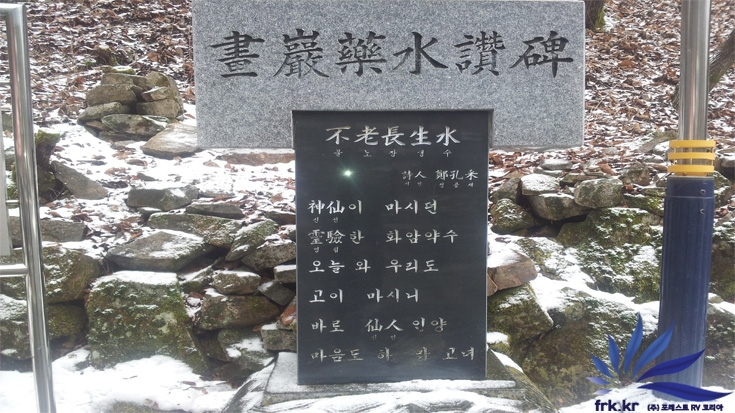 畫巖藥水讚碑
不老長生水
불노장생수
詩人 鄭孔采
시인 정공채
神仙이 마시던
신선
靈驗한 화암약수
영험
오늘와 우리도
고이 마시니
바로 仙人인양
선인
마음도 하 맑고녀
frk.kr (주) 포레스트 RV 코리아